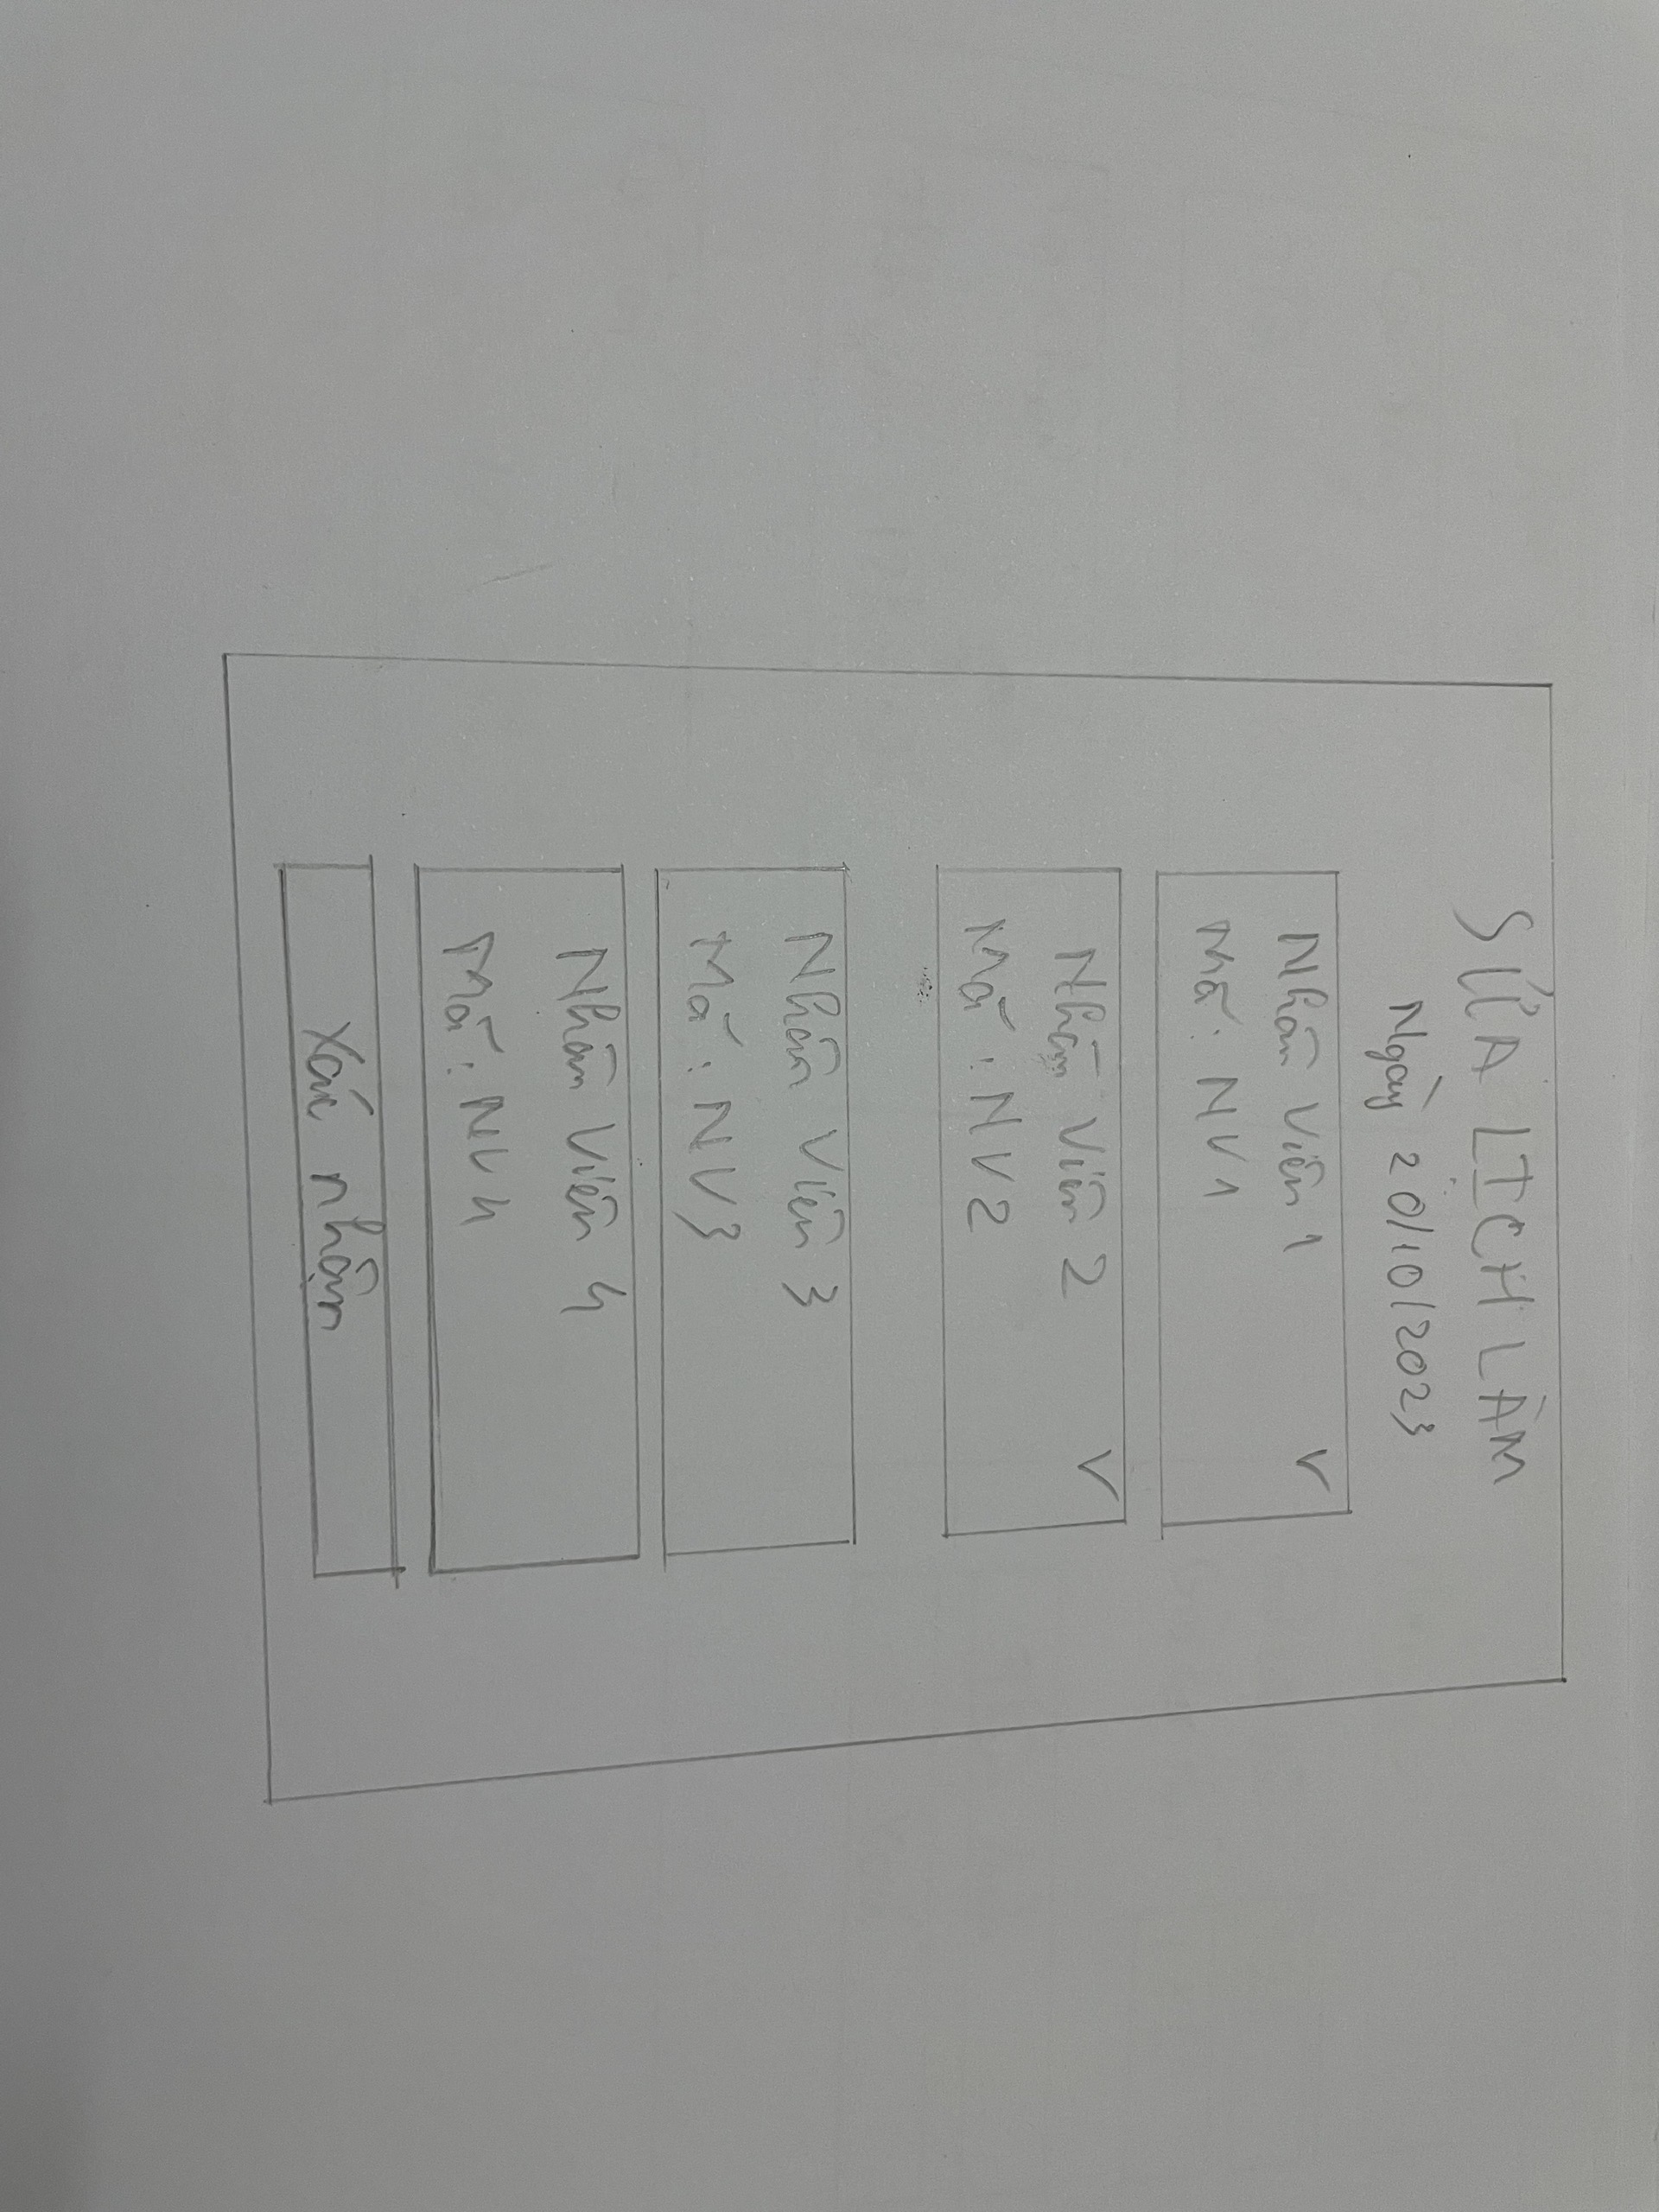 SỬA LỊCH LÀM
Ngày 20/10/2023
Nhân Viên 1 V
Mã: NV1
Nhân Viên 2 V
Mã: NV2
Nhân Viên 3
Mã: NV3
Nhân Viên 4
Mã: NV4
Xác nhận